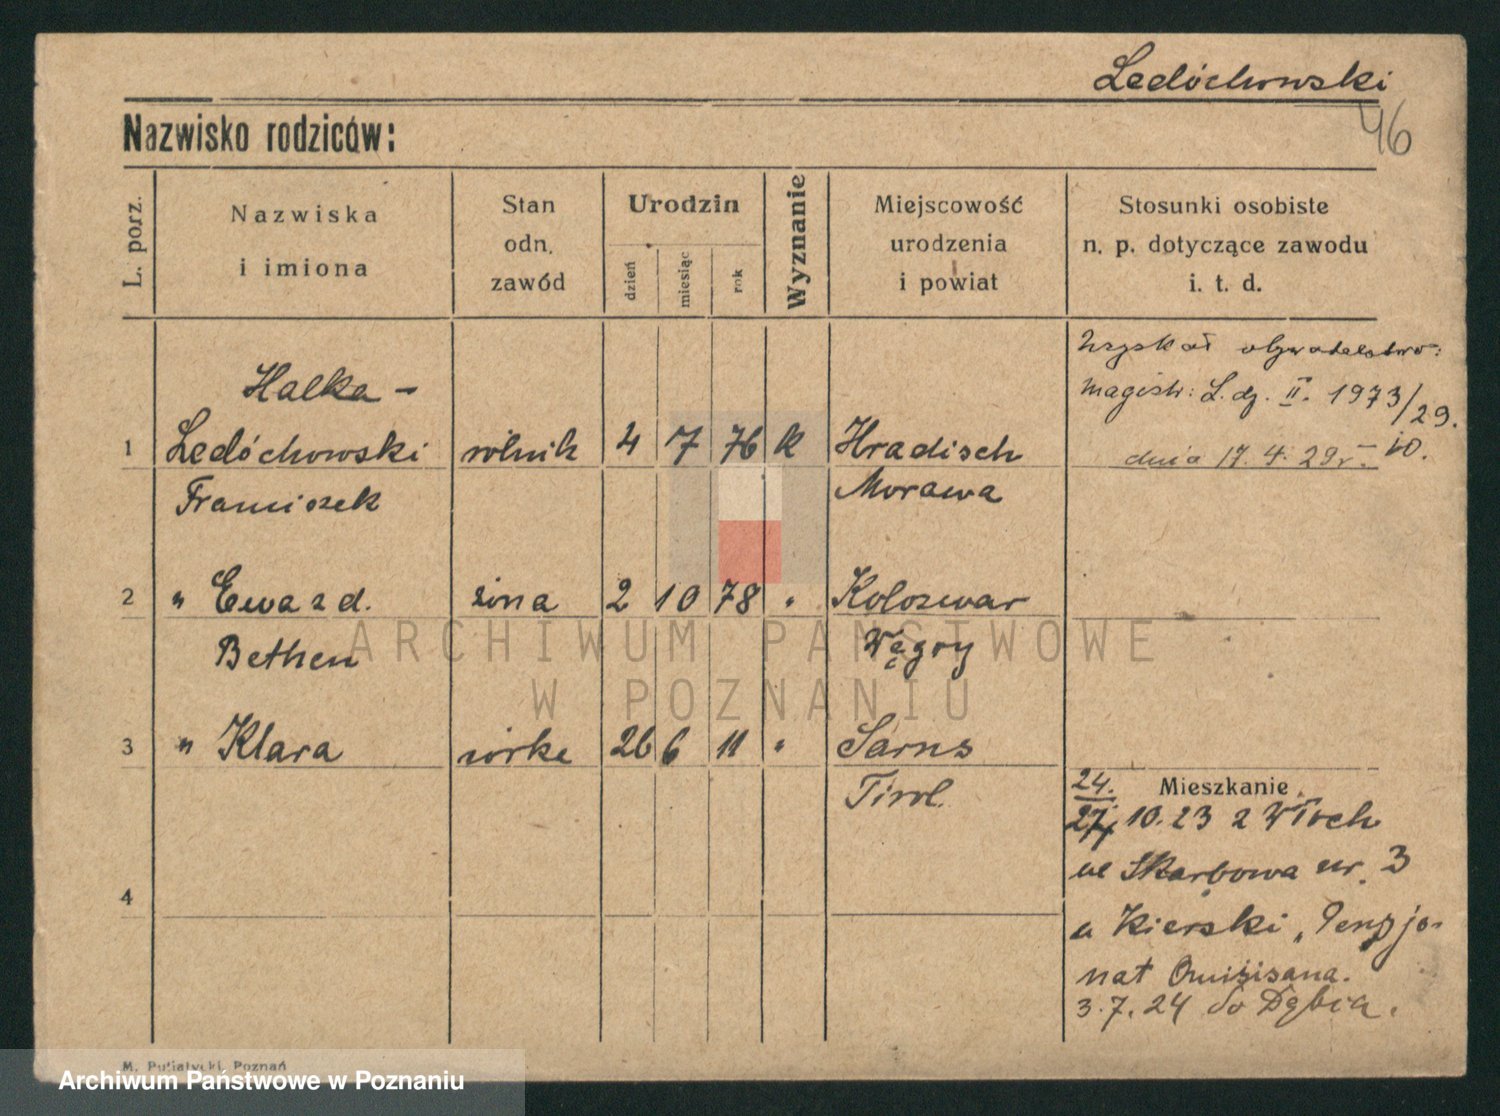 Ledóchowski
46
Nazwisko rodziców:
L. porz.
Nazwiska
i imiona
Stan
odn.
zawód
Urodzin
dzień
miesiąc
rok
Wyznanie
Miejscowość
urodzenia
i powiat
Stosunki osobiste
n. p. dotyczące zawodu
i. t. d.
Uzyskał obywatelstwo:
magistr: L. dz. II. 1973/29.
dnia 17. 4. 29r.
Halka -
1 Ledóchowski rolnik 4 7 76 k Hradisch
Franciszek Morawa
2 " Ewa z d. żona 2 10 78 " Kolozswar
Bethen Węgry
3 " Klara córka 26 6 11 " Sarns
Tirol.
4
Mieszkanie
24.
27/ 10.23 z Włoch
ul Skarbowa nr. 3
u Kierski „Penzjo-
nat
3.7.24 do Dębicz.
ARCHIWUM PAŃSTWOWE
W POZNANIU
M. Putiatycki, Poznań
Archiwum Państwowe w Poznaniu